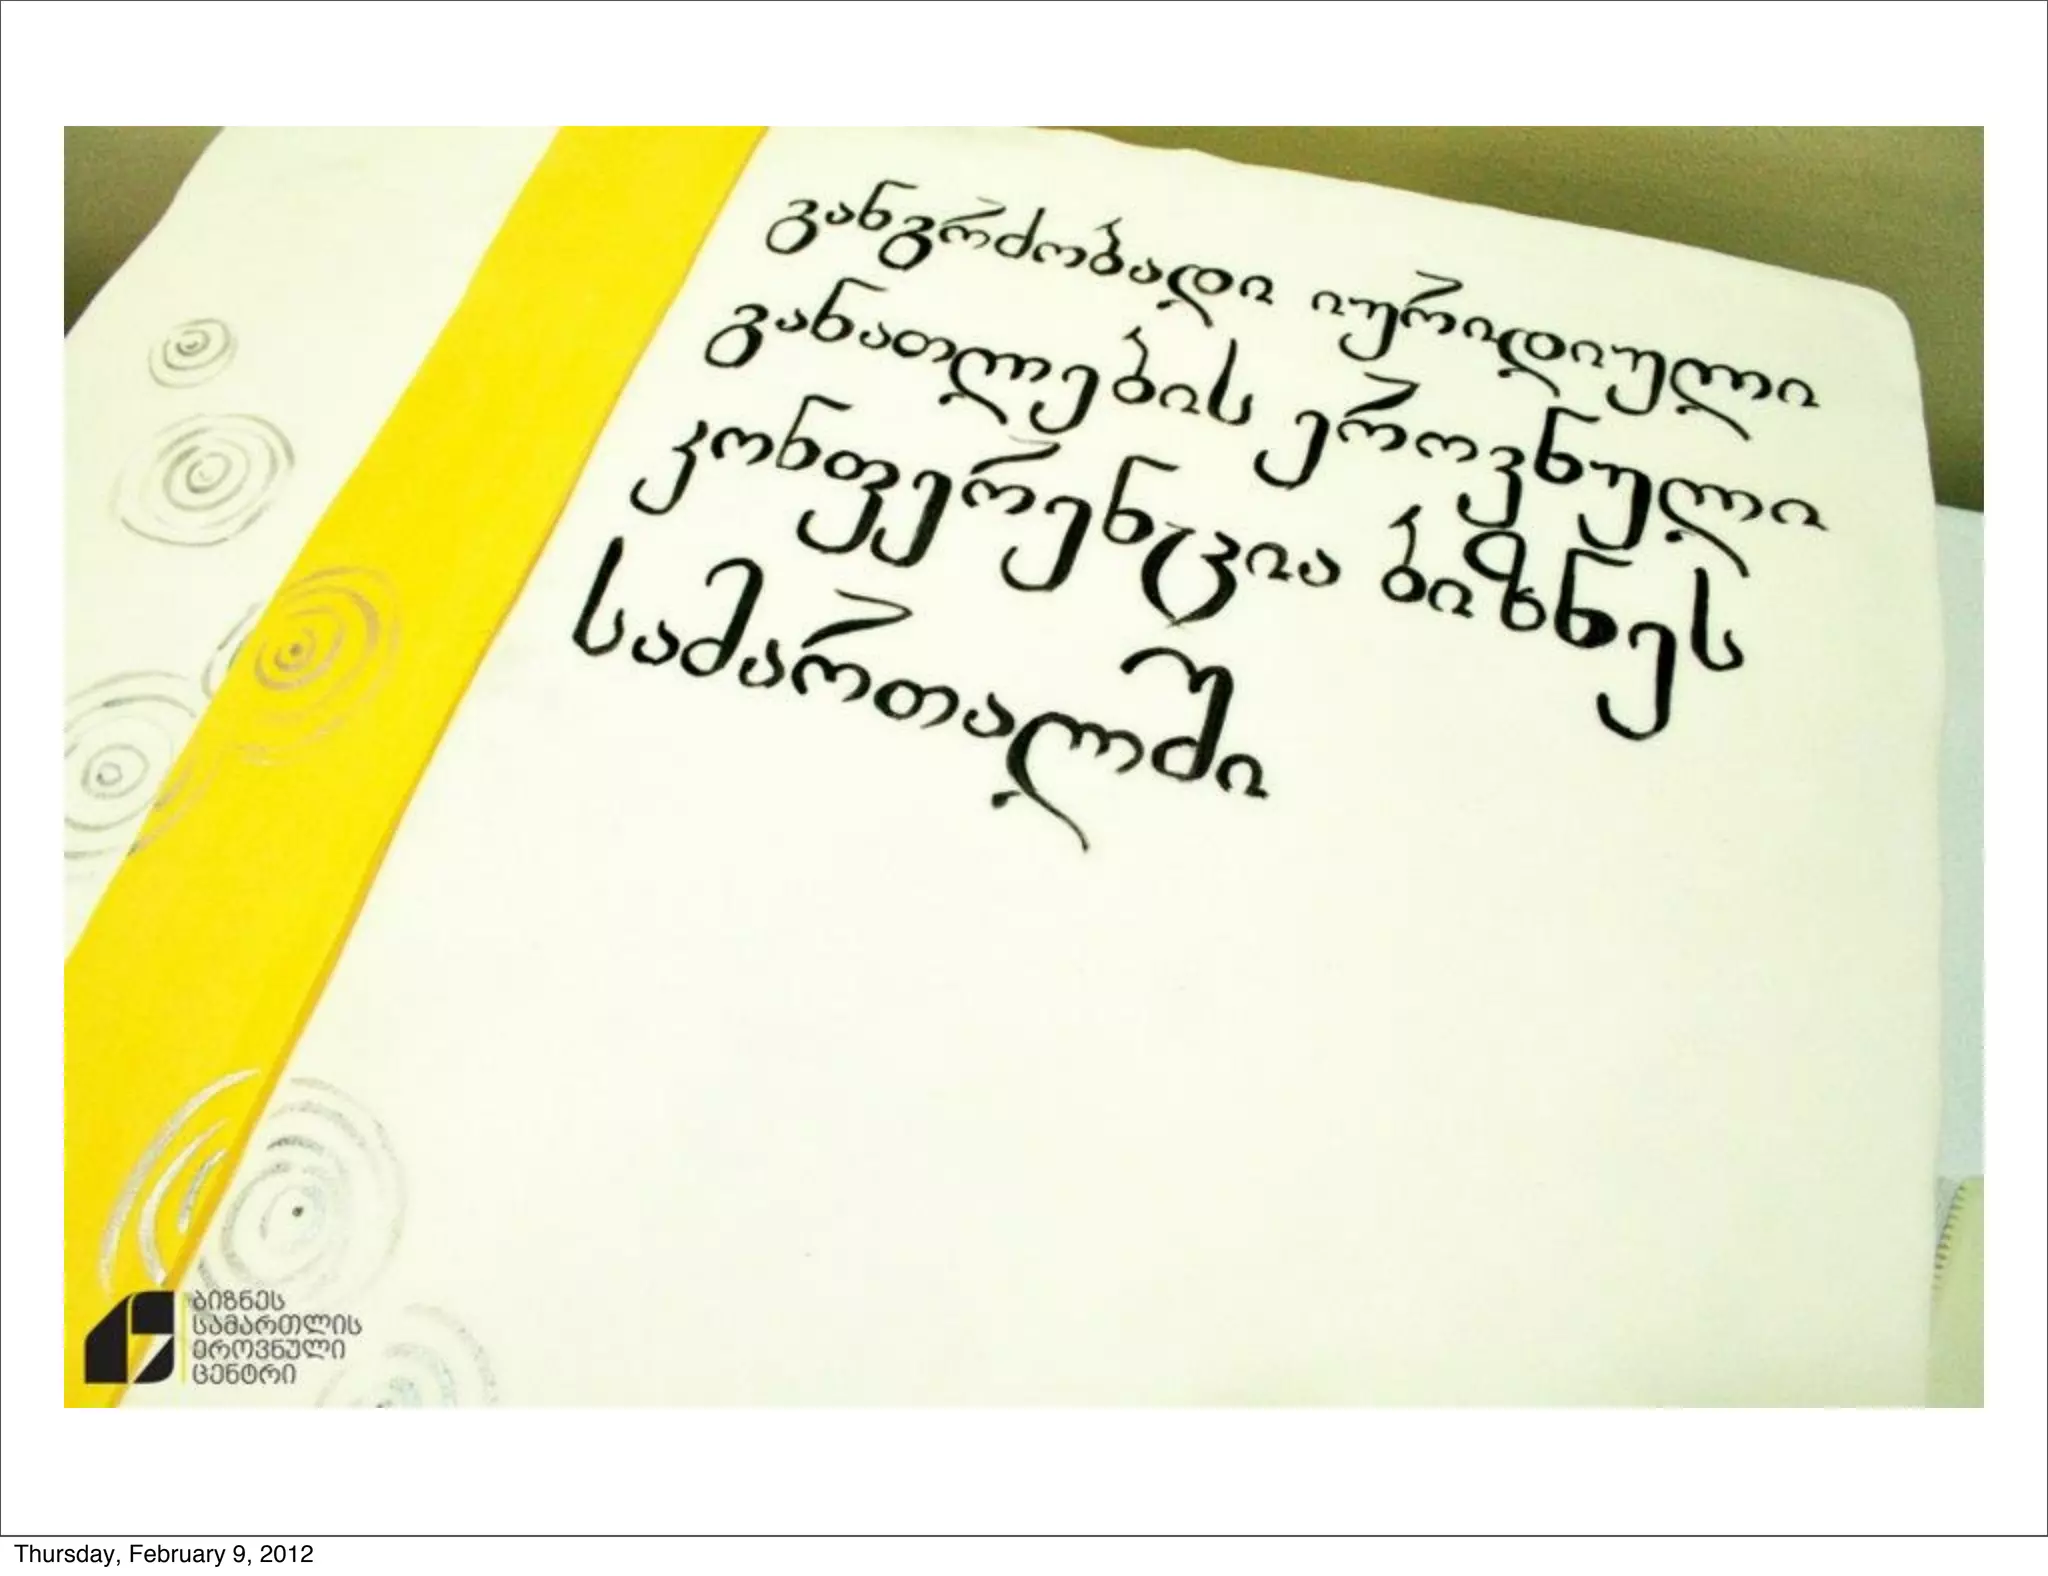 განგრძობადი იურიდიული
განათლების ეროვნული
კონფერენცია ბიზნეს
სამართალში
ბიზნეს
სამართლის
ეროვნული
ცენტრი
Thursday, February 9, 2012